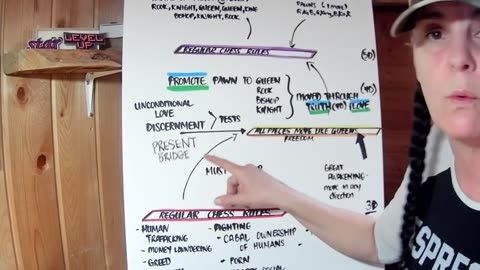 ROOK, KNIGHT, QUEEN, QUEEN, KING
BISHOP, KNIGHT, ROOK
PAWNS
LEVEL
UP
REGULAR CHESS RULES
(5D)
PROMOTE PAWN TO QUEEN
ROOK
BISHOP
KNIGHT
MOVED THROUGH
TRUTH LOVE
(4D)
UNCONDITIONAL
LOVE
DISCERNMENT
TESTS
ALL PIECES MOVE LIKE QUEENS
FREEDOM
PRESENT
BRIDGE
MUST
GREAT
AWAKENING-
MOVE IN ANY
DIRECTION
3D
REGULAR CHESS RULES
- HUMAN
TRAFFICKING
- MONEY LAUNDERING
- GREED
- FIGHTING
- CABAL OWNERSHIP
OF HUMANS
- PORN
ESPRES